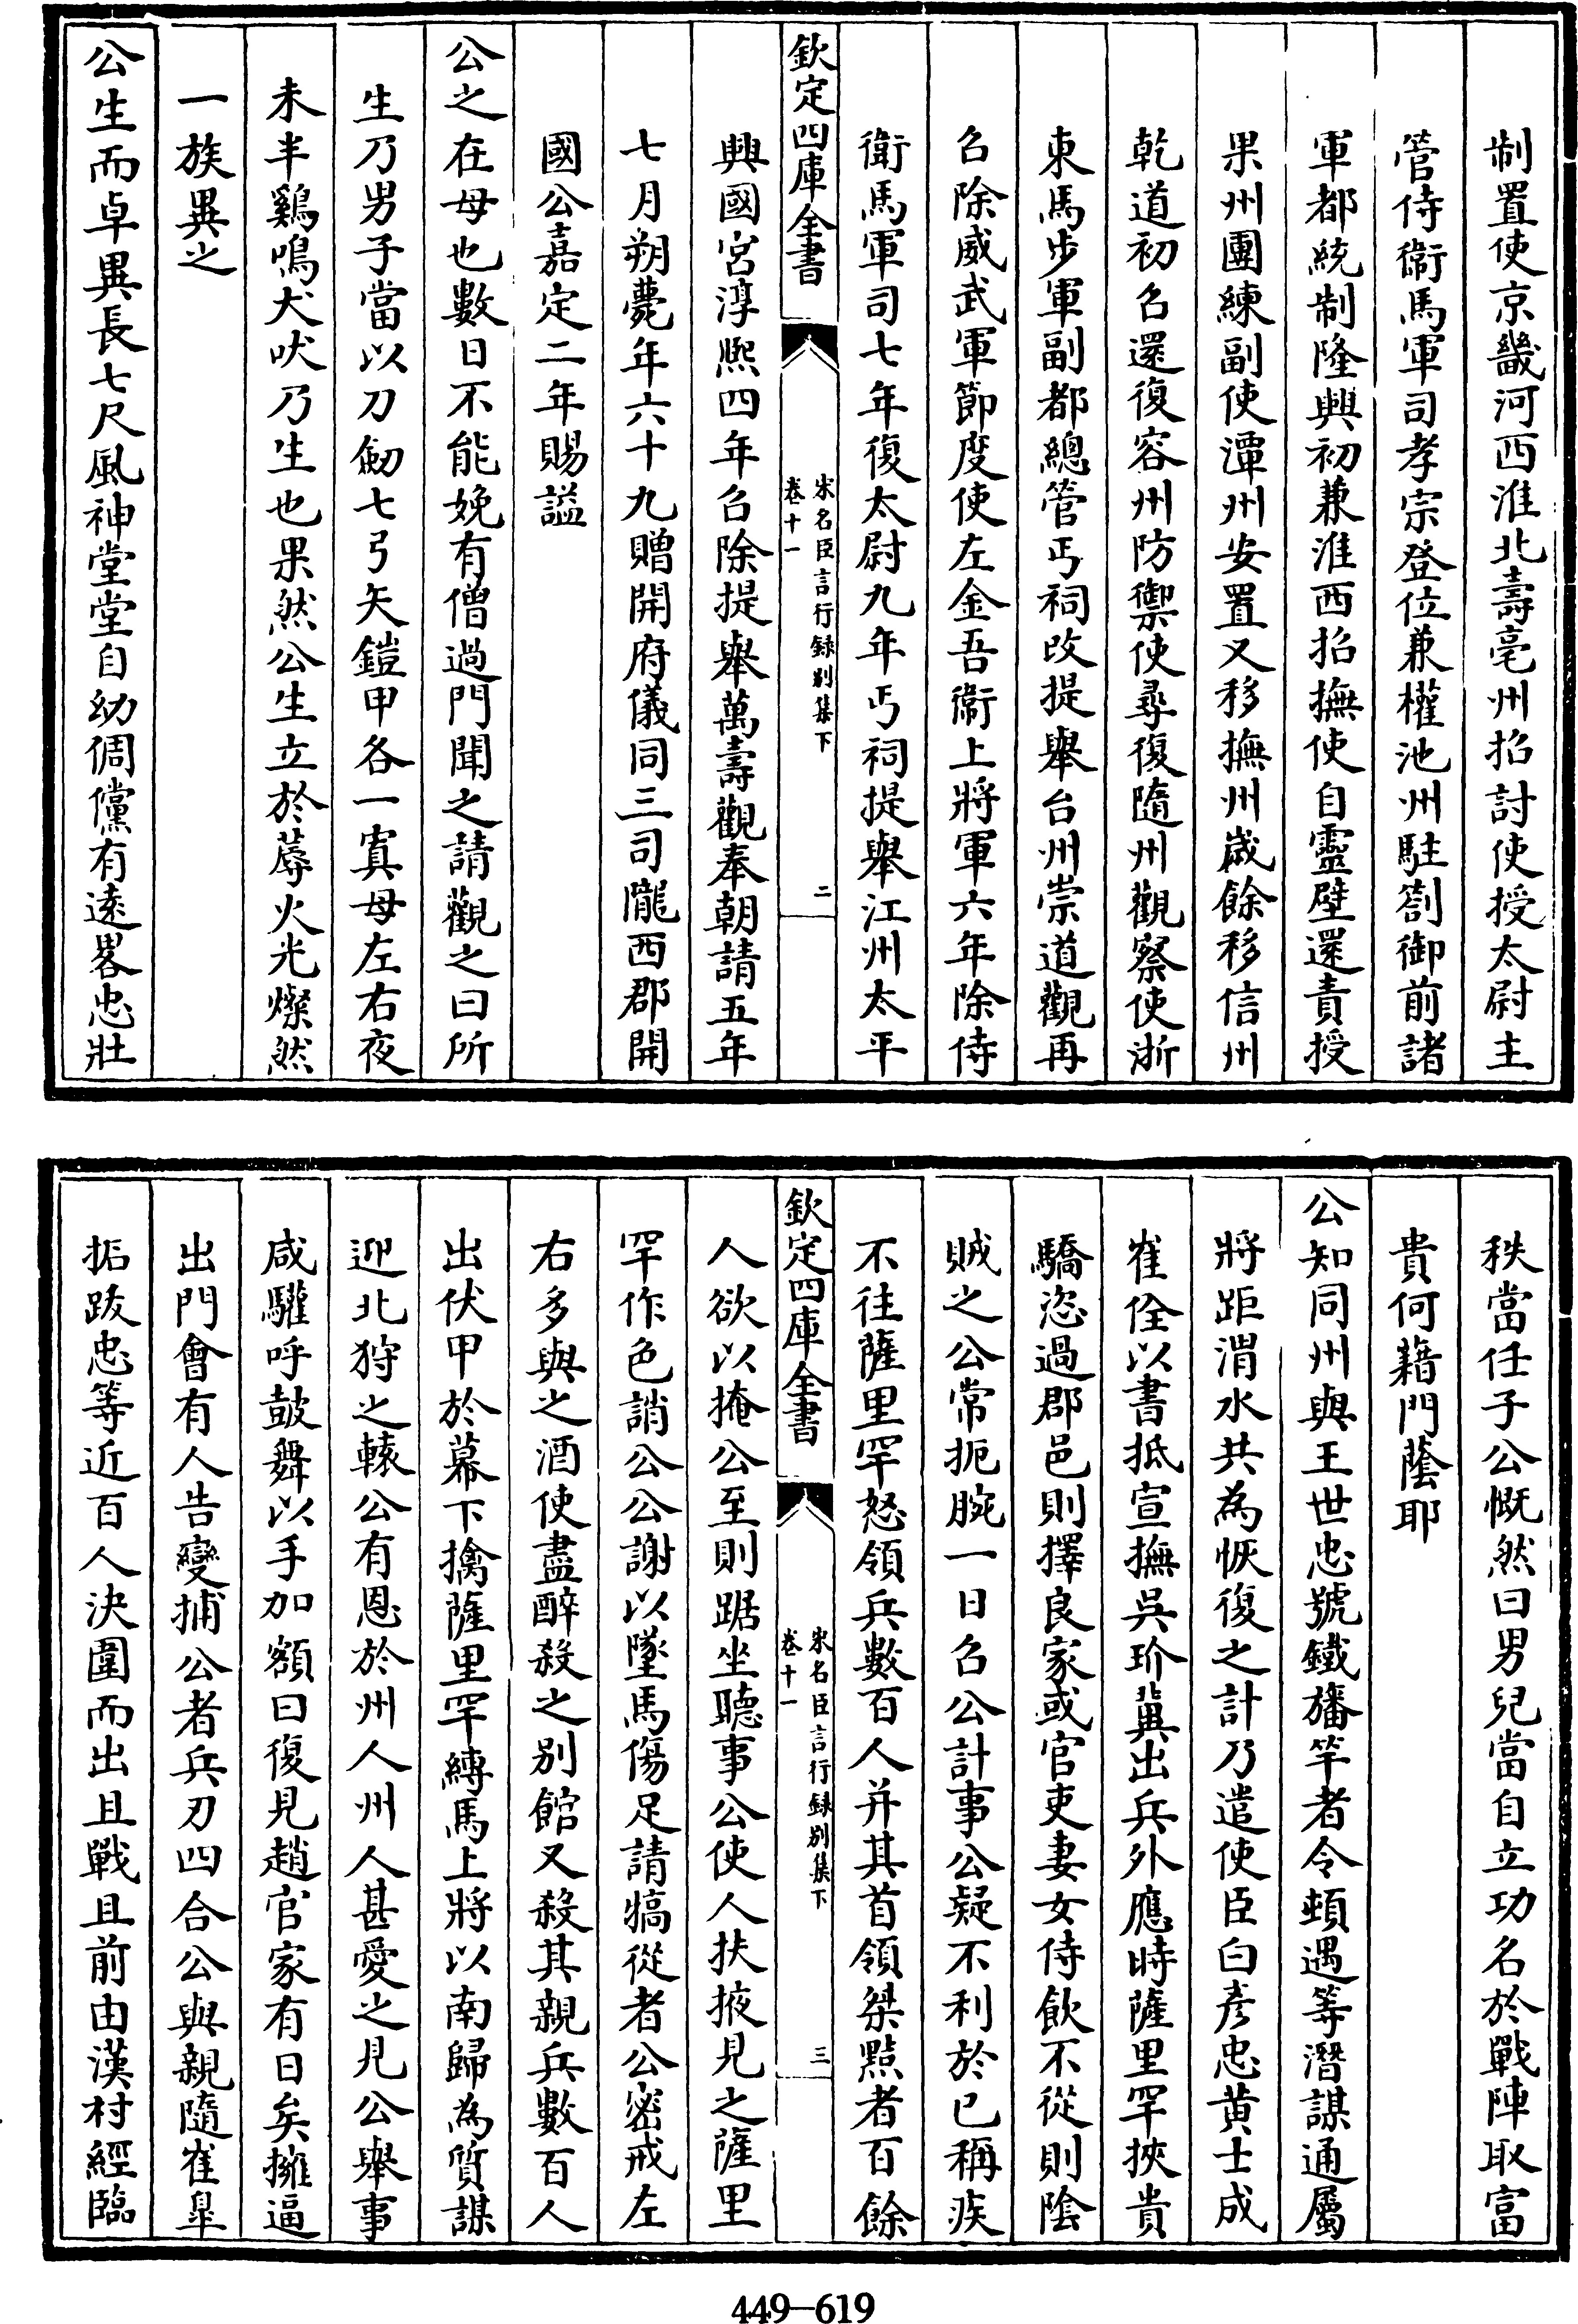 制置使京畿河西淮北壽亳州招討使授太尉主
管侍衛馬軍司孝宗登位兼權池州駐劄御前諸
軍都統制隆興初兼淮西招撫使自靈壁還責授
果州團練副使潭州安置又移撫州歲餘移信州
乾道初召還復容州防禦使尋復隨州觀察使浙
東馬步軍副都總管丐祠改提舉台州崇道觀再
召除威武軍節度使左金吾衛上將軍六年除侍
衛馬軍司七年復太尉九年丐祠提舉江州太平
欽定四庫全書
宋名臣言行録别集下
卷十一
二
興國宫淳熙四年召除提舉萬壽觀奉朝請五年
七月朔薨年六十九贈開府儀同三司隴西郡開
國公嘉定二年賜諡
公之在母也數日不能娩有僧過門聞之請觀之曰所
生乃男子當以刀劒七弓矢鎧甲各一寘母左右夜
未半鷄鳴犬吠乃生也果然公生立於蓐火光燦然
一族異之
公生而卓異長七尺風神堂堂自幼倜儻有逺畧忠壯
秩當任子公慨然曰男兒當自立功名於戰陣取富
貴何藉門蔭耶
公知同州與王世忠號鐵旛竿者令頓遇等潛謀通屬
將距渭水共為恢復之計乃遣使臣白彦忠黄士成
崔佺以書抵宣撫吳玠冀出兵外應時薩里罕挾貴
驕恣過郡邑則擇良家或官吏妻女侍飲不從則隂
賊之公常扼腕一日召公計事公疑不利於已稱疾
不往薩里罕怒領兵數百人并其首領桀黠者百餘
欽定四庫全書
宋名臣言行録别集下
卷十一
三
人欲以掩公至則踞坐聽事公使人扶掖見之薩里
罕作色誚公公謝以墜馬傷足請犒從者公密戒左
右多與之酒使盡醉殺之别館又殺其親兵數百人
出伏甲於幕下擒薩里罕縛馬上將以南歸為質謀
迎北狩之轅公有恩於州人州人甚愛之見公舉事
咸驩呼鼓舞以手加額曰復見趙官家有日矣擁逼
出門會有人告變捕公者兵刃四合公與親隨崔臯
拓跋忠等近百人決圍而出且戰且前由漢村經臨
449—619